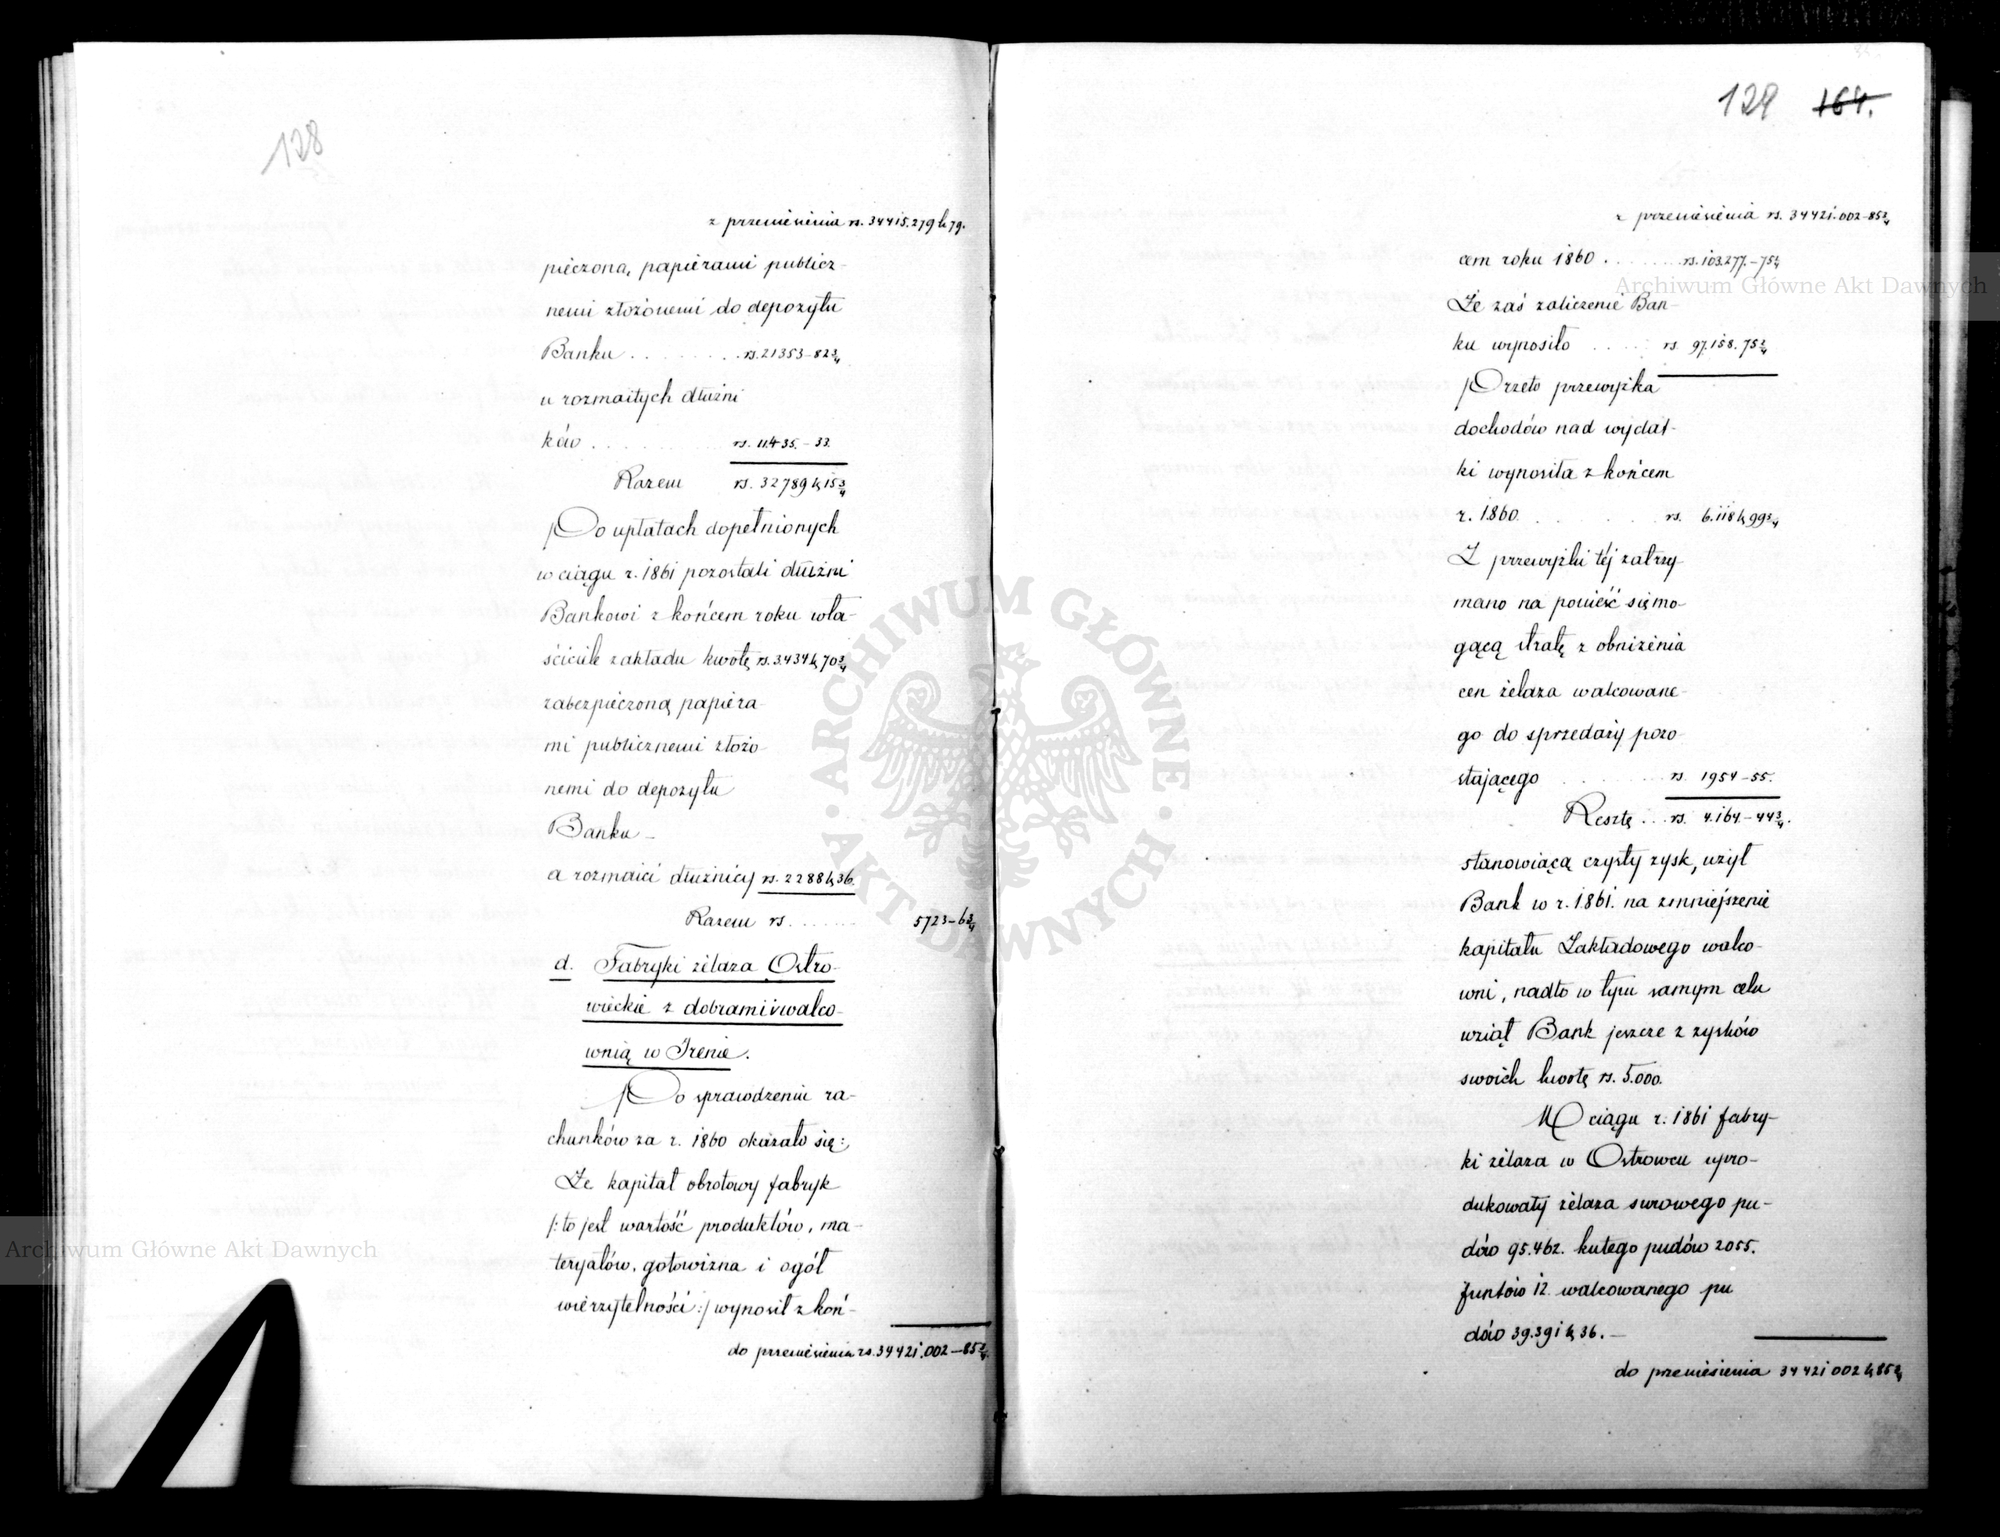 128
z przeniesienia rs. 34415.279 k 79.
pieczoną, papierami publicz-
nemi złożonemi do depozytu
Banku . . . . . . . . rs. 21353-82¾
u rozmaitych dłużni
ków . . . . . . . . rs. 11435.-33.
Razem rs. 32789 k 15¾
Po upłatach dopełnionych
w ciągu r. 1861 pozostali dłużni
Bankowi z końcem roku wła-
ściciele zakładu kwotę rs. 3.434 k 70¾
zabezpieczoną papiera-
mi publicznemi złożo-
nemi do depozytu
Banku -
a rozmaici dłużnicy rs. 2288 k 36.
Razem rs. . . . . . . 5723-6¾
d. Fabryki żelaza Ostro-
wieckie z dobrami i walco-
wnią w Irenie.
Po sprawdzeniu ra-
chunków za r. 1860 okazało się:
Że kapitał obrotowy fabryk
/: to jest wartość produktów, ma-
teryałów, gotowizna i ogół
wierzytelności :/ wynosił z koń-
do przeniesienia rs. 34421.002-85¾
129 164.
z przeniesienia rs. 34421.002-85¾
cem roku 1860 . . . . . . rs. 103.277.-75¾
Że zaś zaliczenie Ban-
ku wynosiło . . . . rs 97.158.75¾
Przeto przewyżka
dochodów nad wydat-
ki wynosiła z końcem
r. 1860. . . . . . . . rs. 6.118 k 99¾
Z przewyżki téj zatrzy
mano na ponieść się mo-
gącą stratę z obniżenia
cen żelaza walcowane-
go do sprzedaży pozo-
stającego . . . . . . rs. 1954-55.
Resztę . . rs. 4.164.-44¾.
stanowiącą czysty zysk, użył
Bank w r. 1861. na zmniejszenie
kapitału Zakładowego walco-
wni, nadto w tym samym celu
wziął Bank jeszcze z zysków
swoich kwotę rs. 5.000.
W ciągu r. 1861 fabry-
ki żelaza w Ostrowcu wypro-
dukowały żelaza surowego pu-
dów 95.462. kutego pudów 2055.
funtów 12. walcowanego pu
dów 39.391 k 36. -
do przeniesienia 34421002 k 85¾
Archiwum Główne Akt Dawnych
Archiwum Główne Akt Dawnych
· ARCHIWUM GŁÓWNE · AKT DAWNYCH